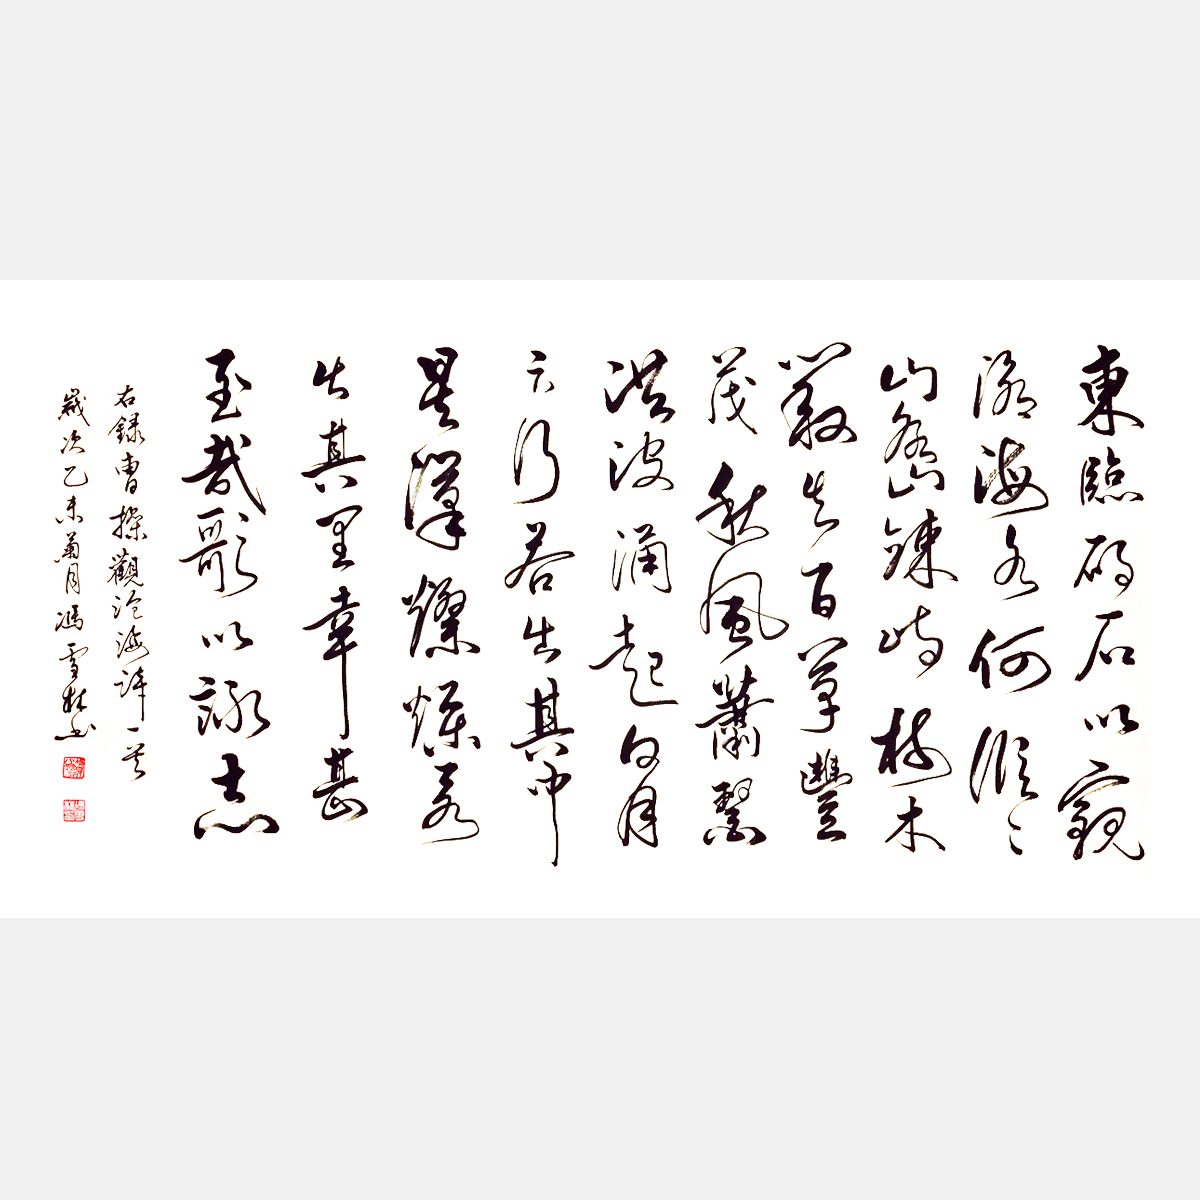 東臨碣石以觀
滄海水何澹〻
山島竦峙樹木
叢生百草豐
茂秋風蕭瑟
洪波涌起日月
之行若出其中
星漢燦爛若
出其里幸甚
至哉歌以詠志
右録曹操觀滄海詩一首
歲次乙未菊月馮雪林书